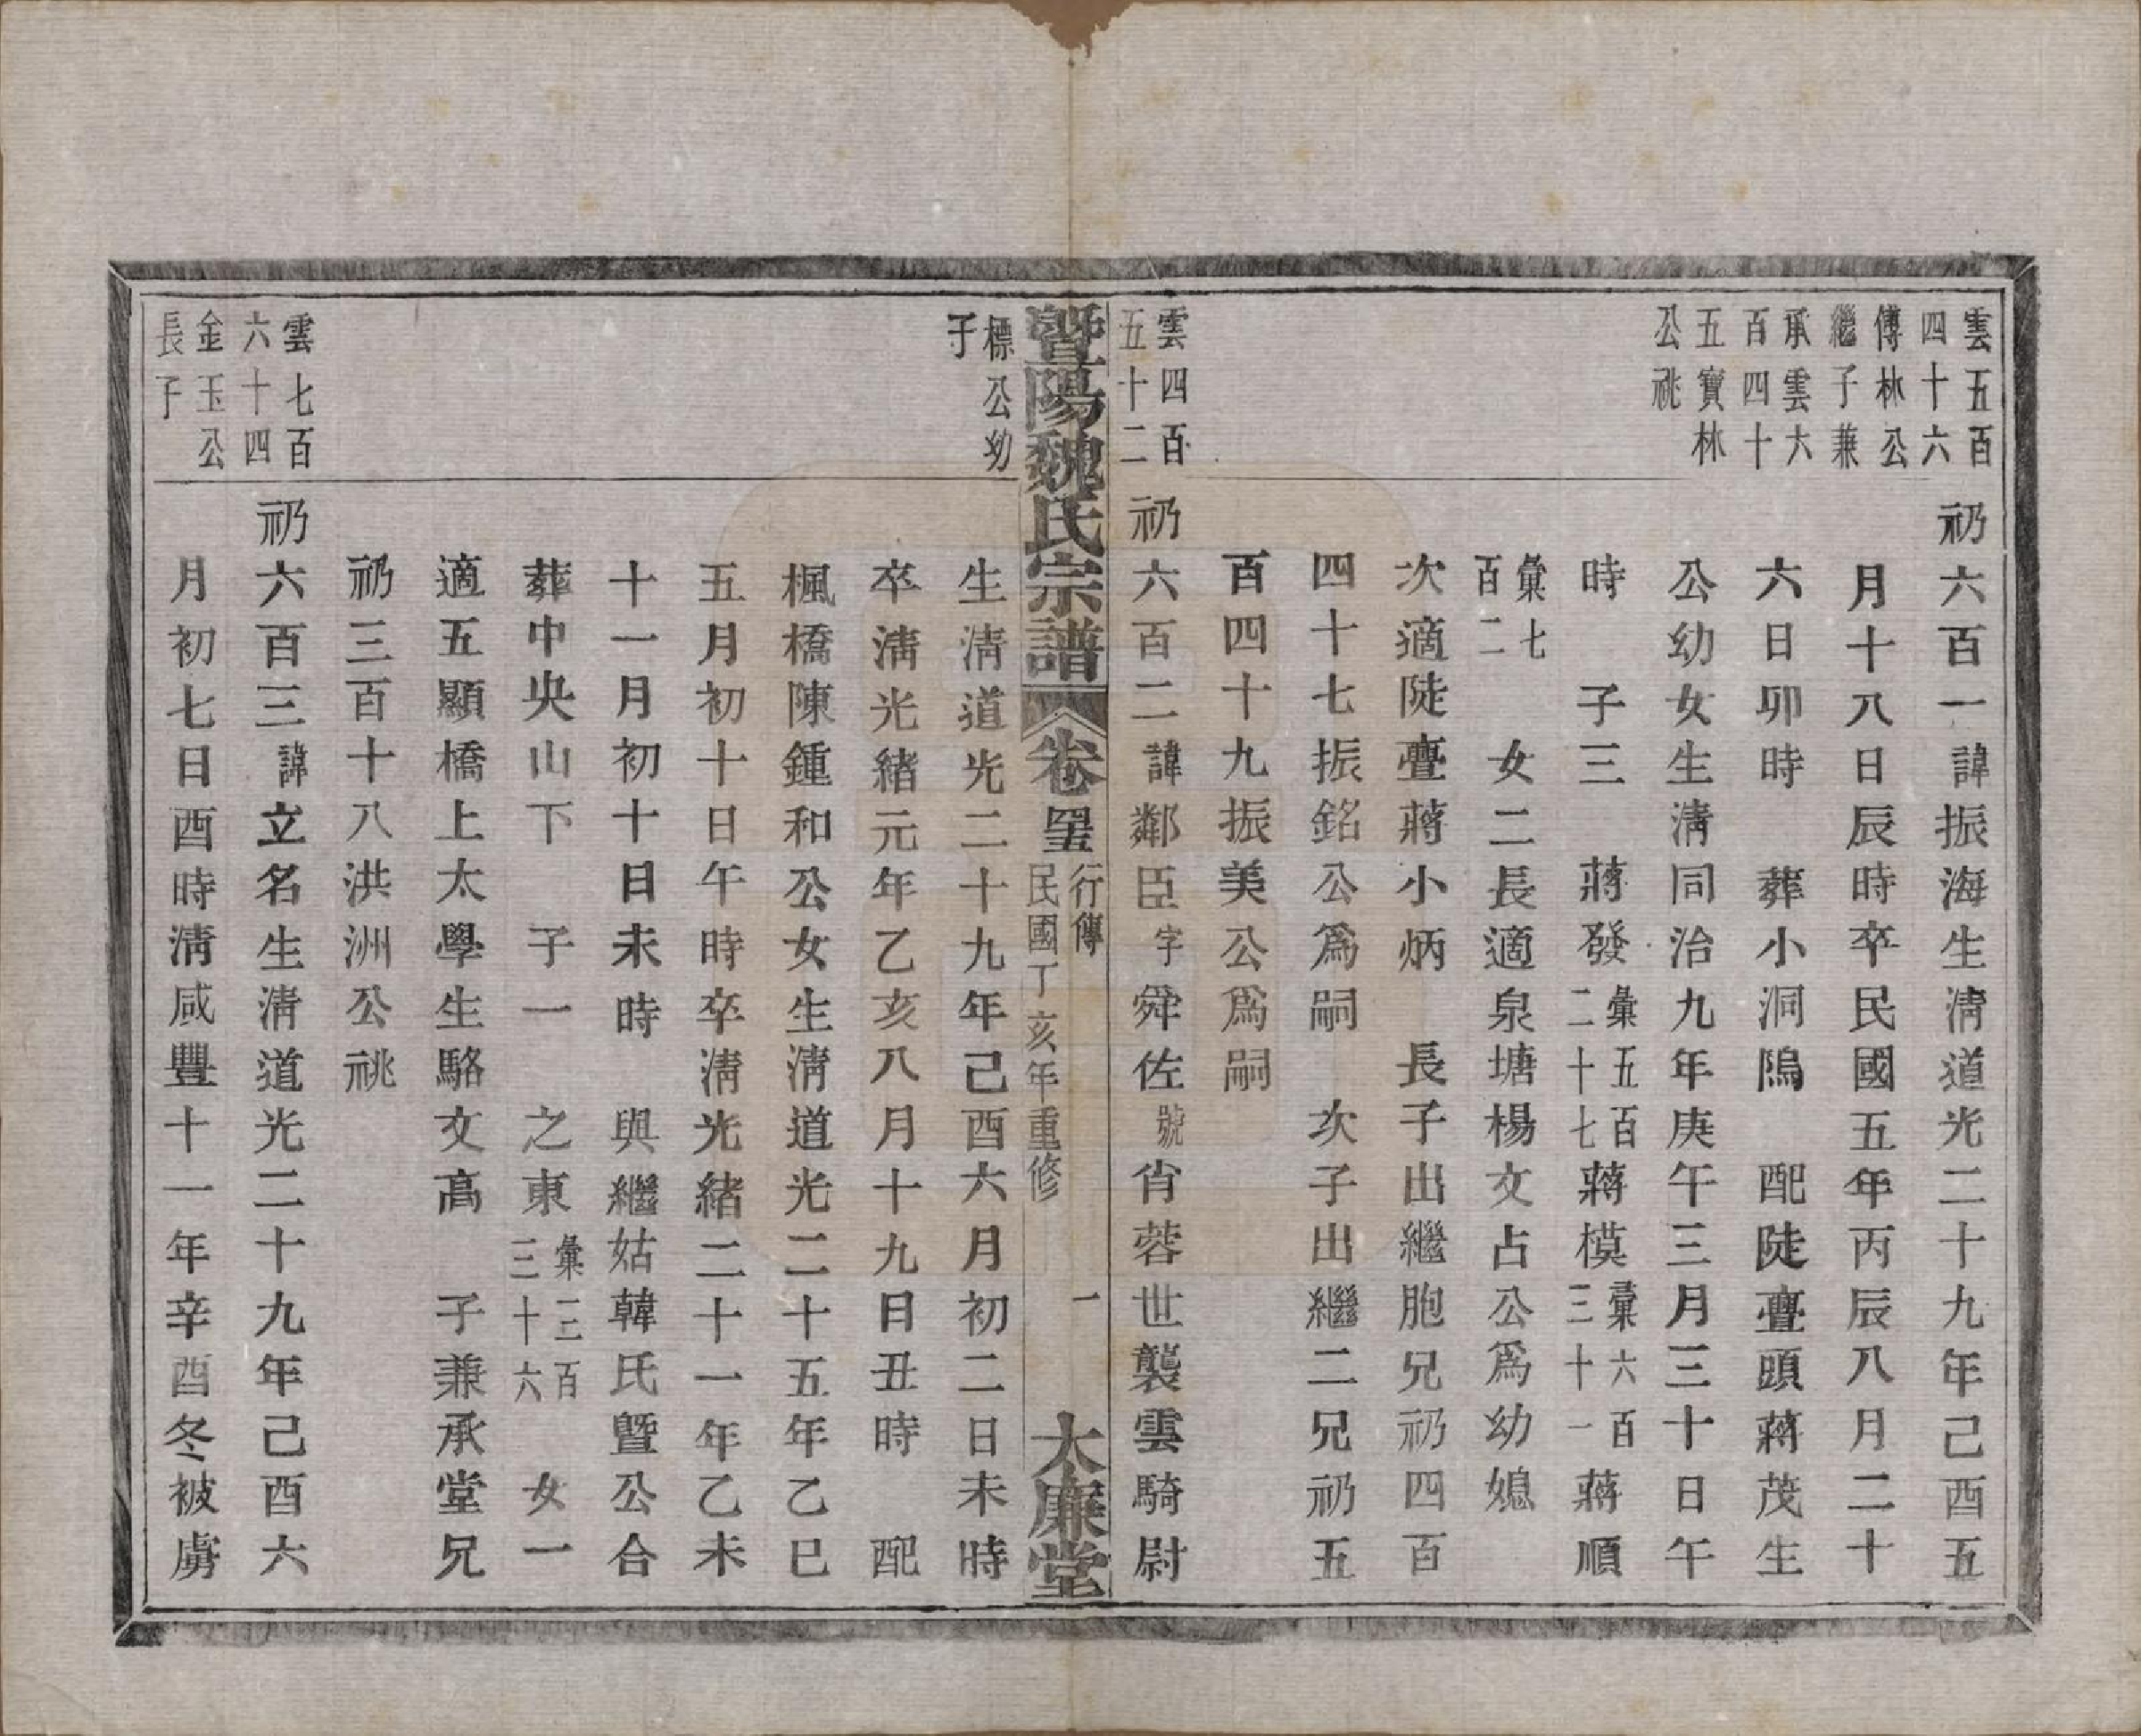 雲五百
四十六
傳林公
繼子兼
承雲六
百四十
五寶林
公祧
礽六百一諱振海生清道光二十九年己酉五
月十八日辰時卒民國五年丙辰八月二十
六日卯時 葬小洞隖 配陡亹頭蔣茂生
公幼女生清同治九年庚午三月三十日午
時 子三 蔣發彙五百二十七蔣模彙六百三十一蔣順
彙七百二 女二長適泉塘楊文占公爲幼媳
次適陡亹蔣小炳 長子出繼胞兄礽四百
四十七振銘公爲嗣 次子出繼二兄礽五
百四十九振美公爲嗣
雲四百
五十二
標公幼
子
礽六百二諱鄰臣字舜佐號肖蓉世襲雲騎尉
暨陽魏氏宗譜 卷四五 行傳 民國丁亥年重修 一 大廉堂
生清道光二十九年己酉六月初二日未時
卒清光緒元年乙亥八月十九日丑時 配
楓橋陳鍾和公女生清道光二十五年乙巳
五月初十日午時卒清光緒二十一年乙未
十一月初十日未時 與繼姑韓氏暨公合
葬中央山下 子一 之東彙三百三十六 女一
適五顯橋上太學生駱文高 子兼承堂兄
礽三百十八洪洲公祧
雲七百
六十四
金玉公
長子
礽六百三諱立名生清道光二十九年己酉六
月初七日酉時清咸豐十一年辛酉冬被虜